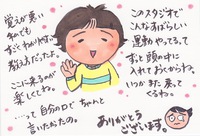 覚えが悪い
私でも
すごくわかりやすい
教え方だったよ。
ここに来るのが
楽しくてね。
…って 自分の口で ちゃんと
言いたかったの。
このスタジオで
こんなすばらしい
運動やってるって
ずっと頭の中に
入れておくからね。
いつか また 戻って
くるねっ
ありがとう
ございます。